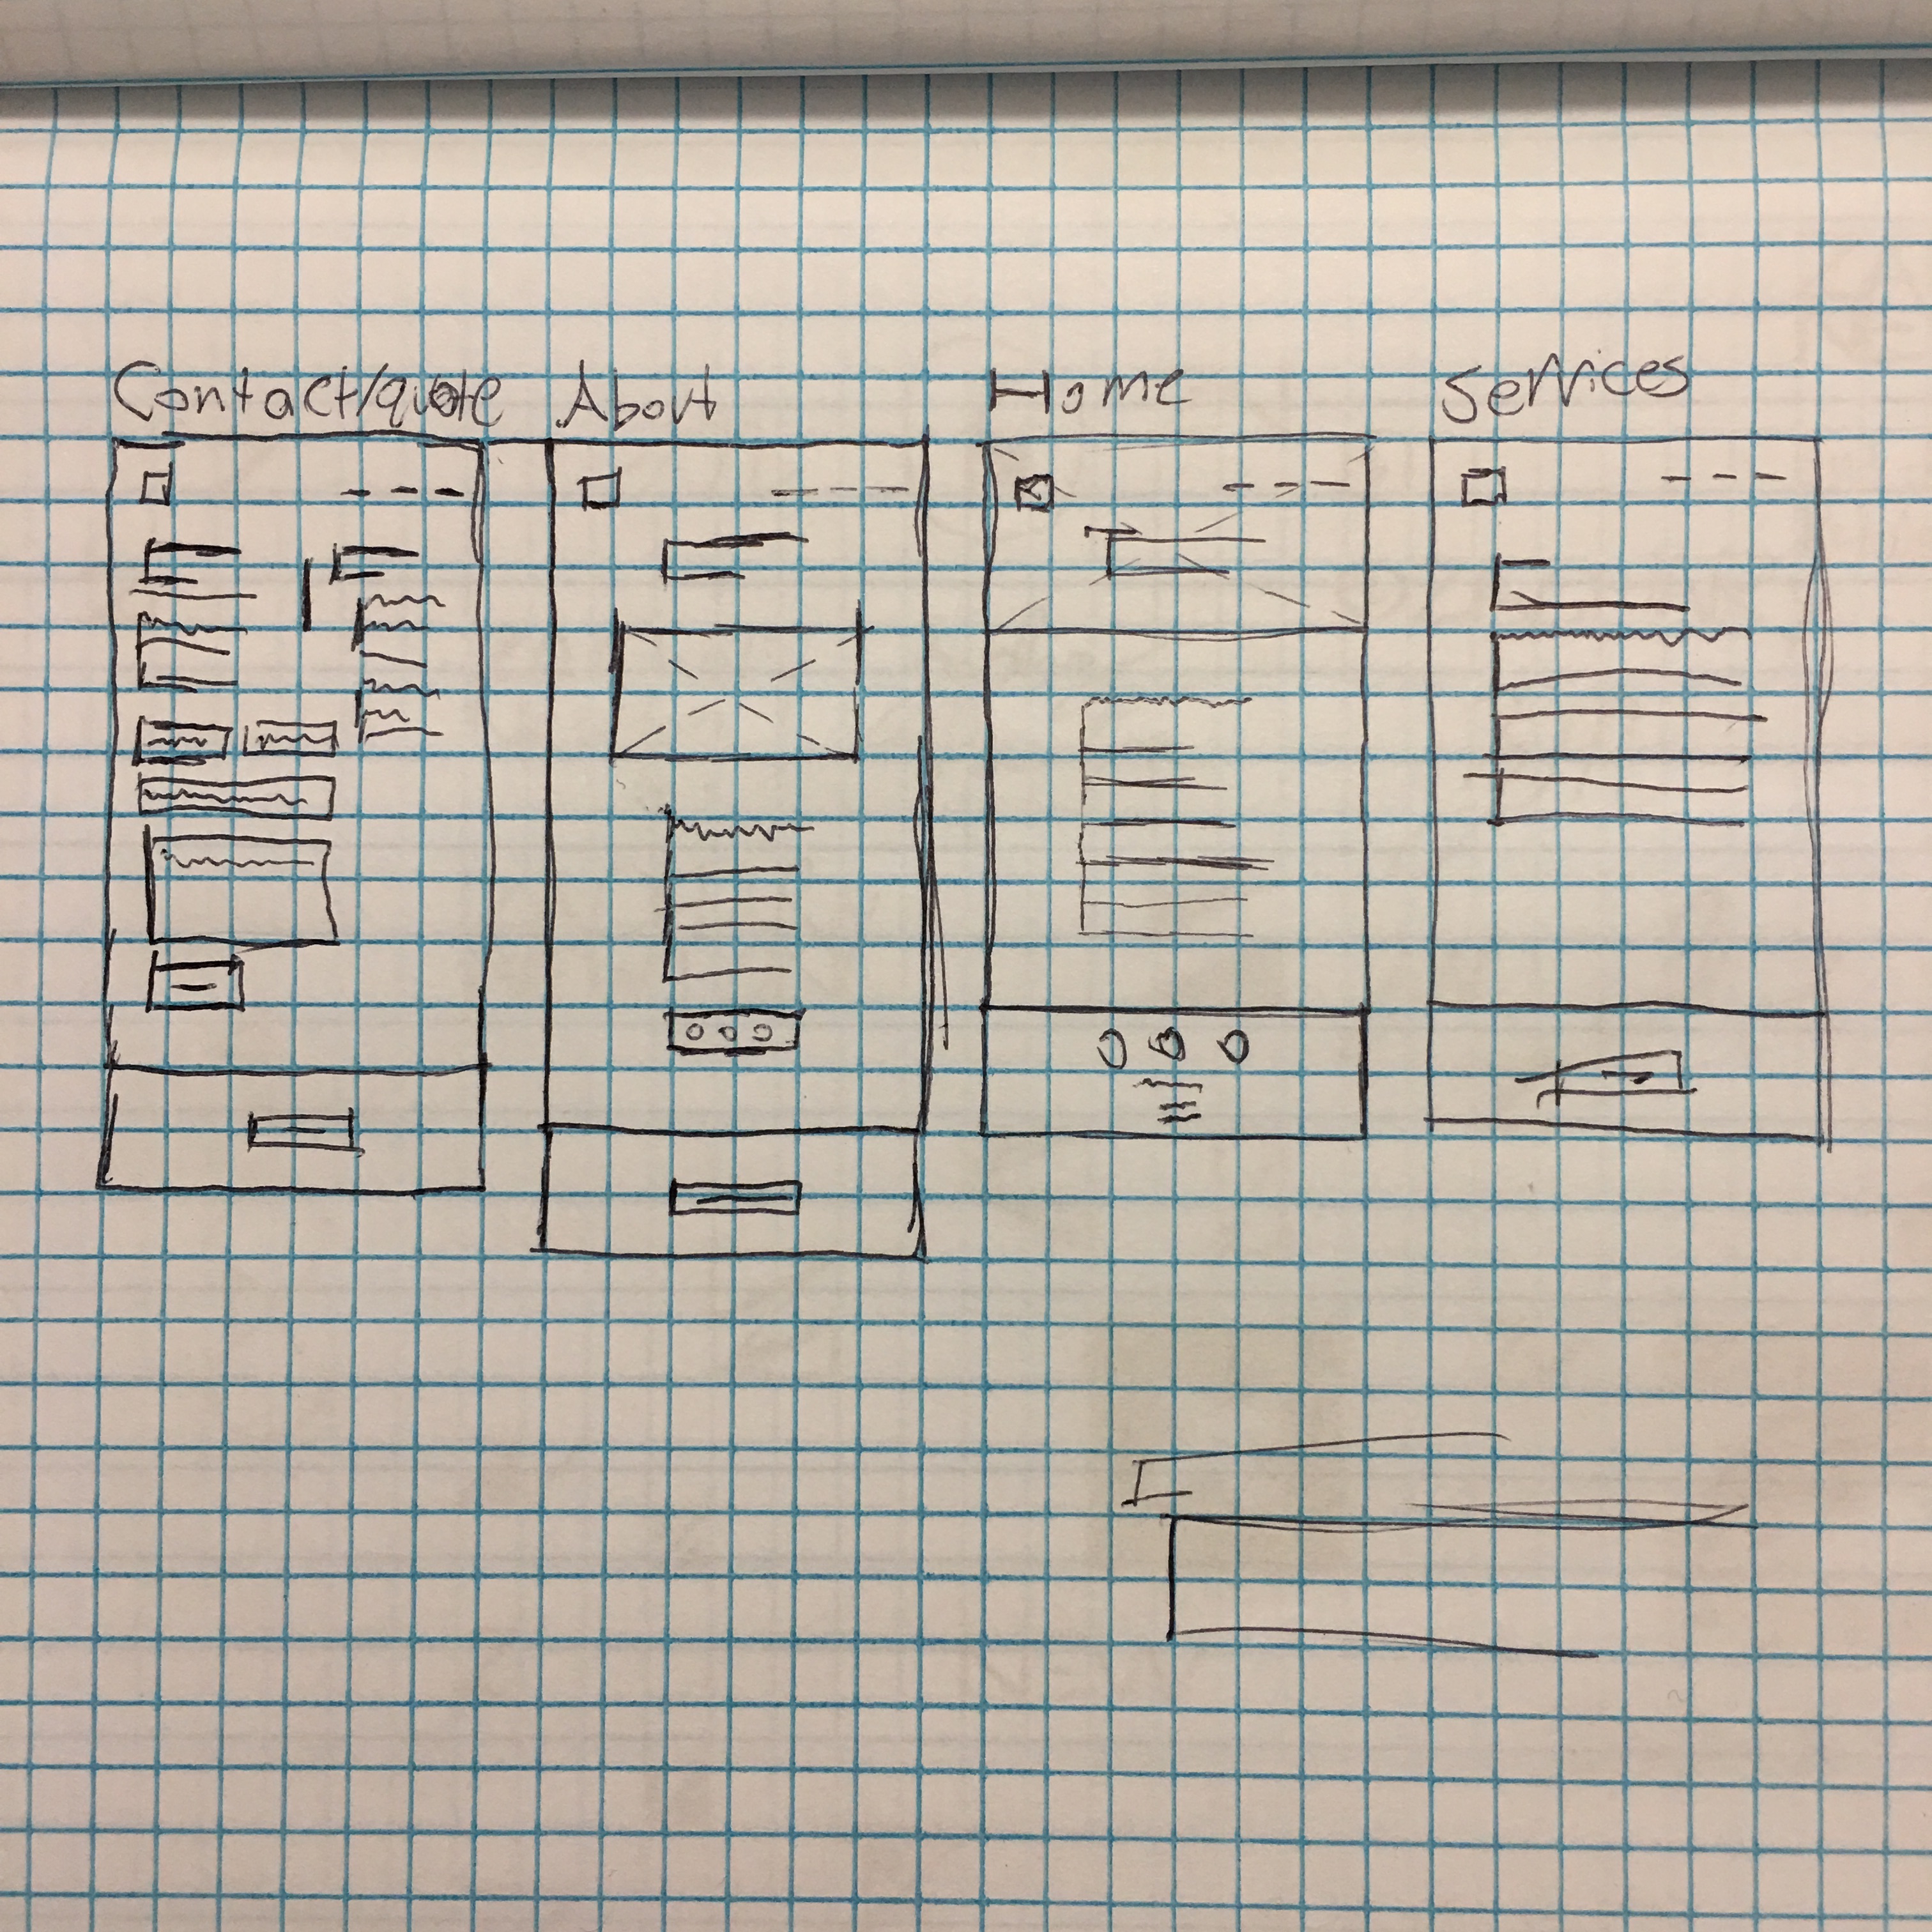 Contact/quote About Home Services